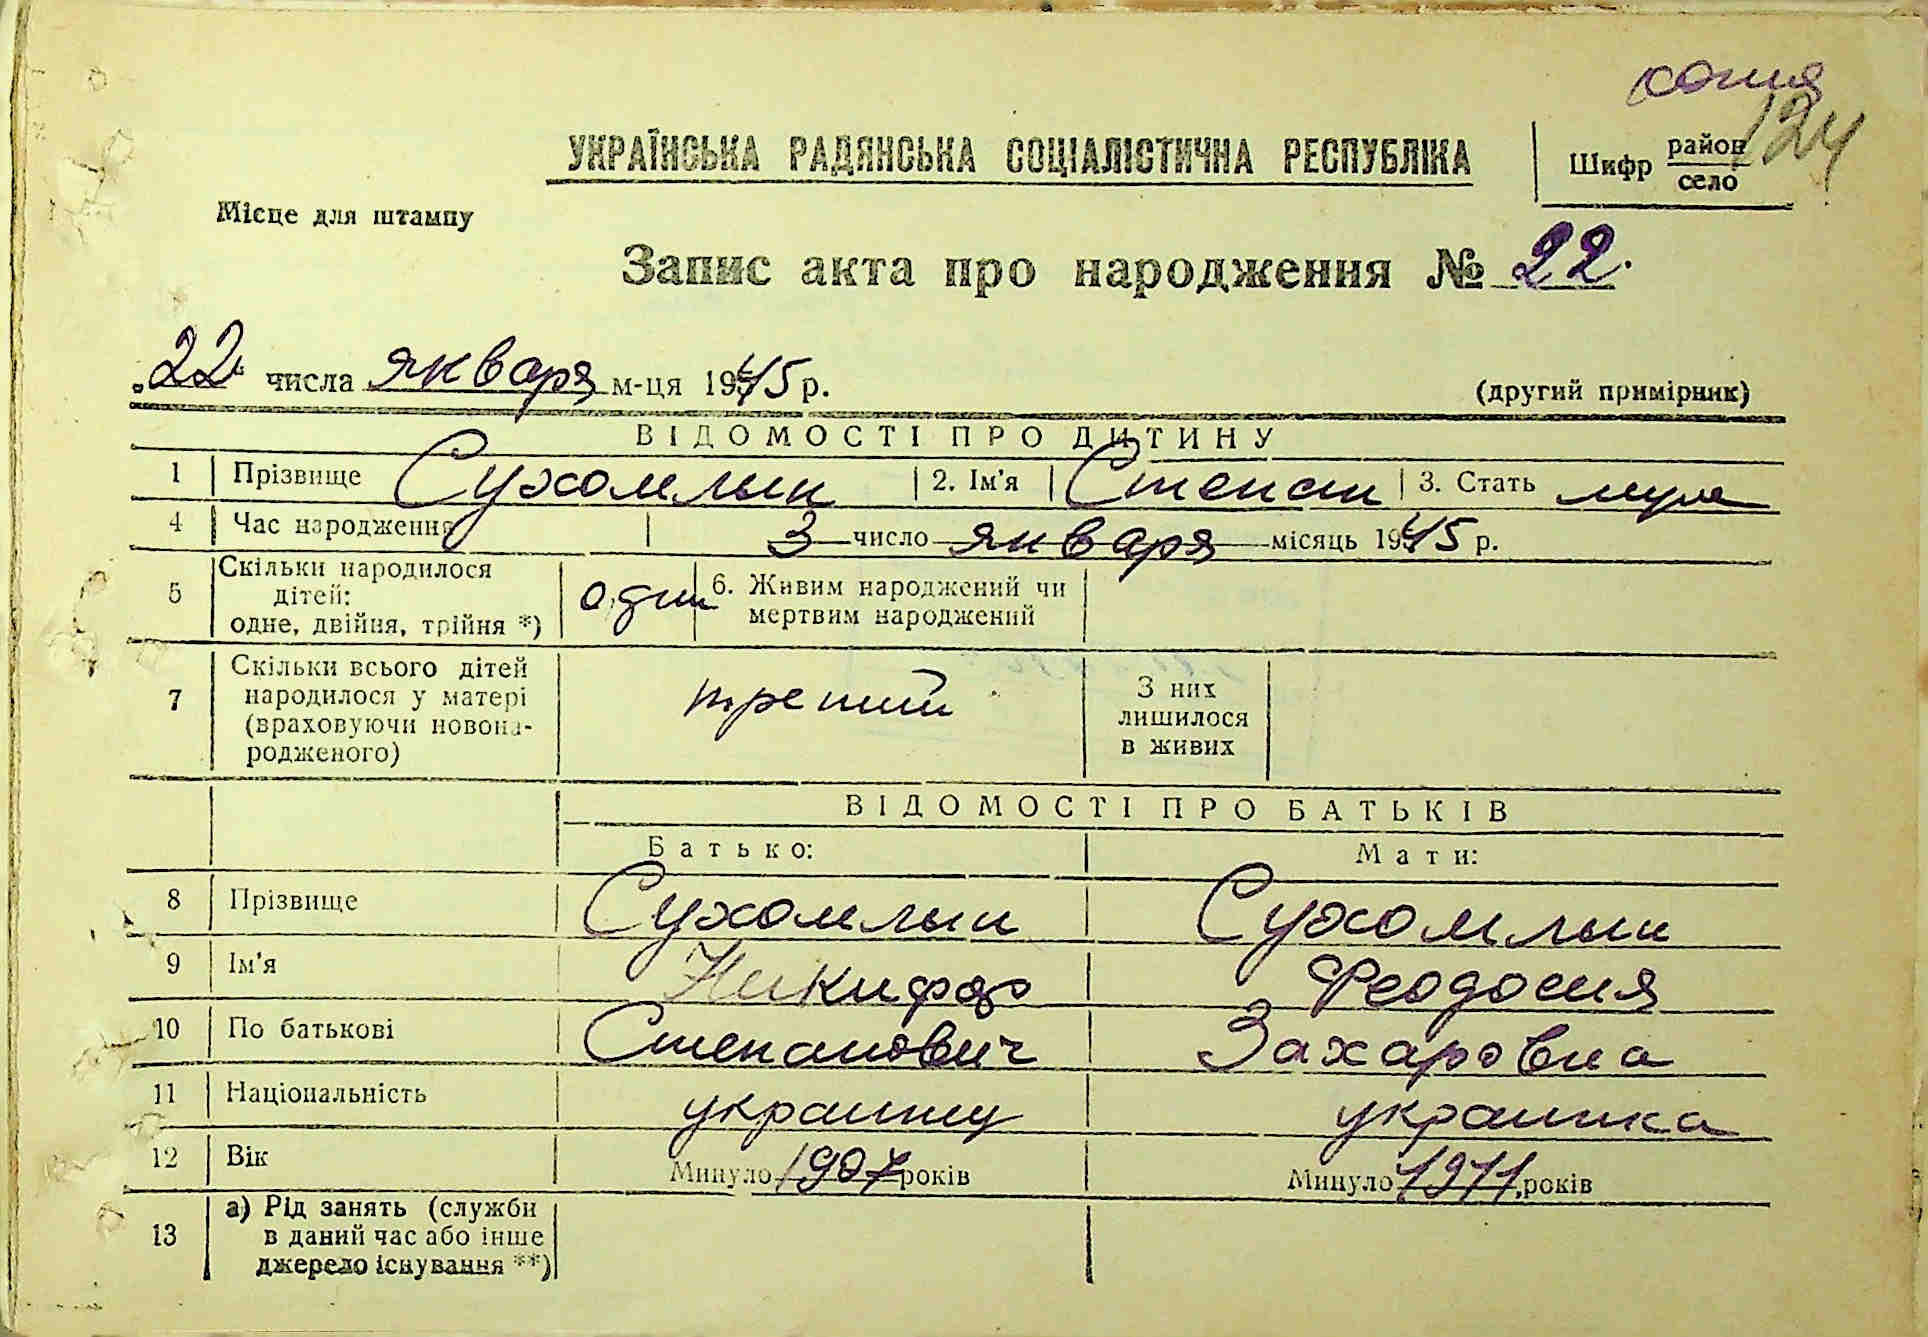 копия
124
УКРАЇНСЬКА РАДЯНСЬКА СОЦІАЛІСТИЧНА РЕСПУБЛІКА
Шифр район
село
Місце для штампу
Запис акта про народження № 22.
„22“ числа января м-ця 1945 р.
(другий примірник)
ВІДОМОСТІ ПРО ДИТИНУ
1 Прізвище Сухомлын 2. Ім'я Степан 3. Стать муж
4 Час народження 3 число января місяць 1945 р.
5 Скільки народилося дітей: одне, двійня, трійня *) один 6. Живим народжений чи мертвим народжений
7 Скільки всього дітей народилося у матері (враховуючи новона-родженого) третий З них лишилося в живих
ВІДОМОСТІ ПРО БАТЬКІВ
Батько: Мати:
8 Прізвище Сухомлын Сухомлын
9 Ім'я Никифор Феодосия
10 По батькові Степанович Захаровна
11 Національність украинц украинка
12 Вік Минуло 1907 років Минуло 1911 років
13 а) Рід занять (служби в даний час або інше джерело існування **)